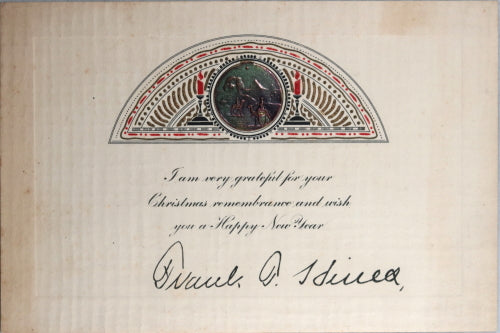 I am very grateful for your
Christmas remembrance and wish
you a Happy New Year
Frank T. Hines,